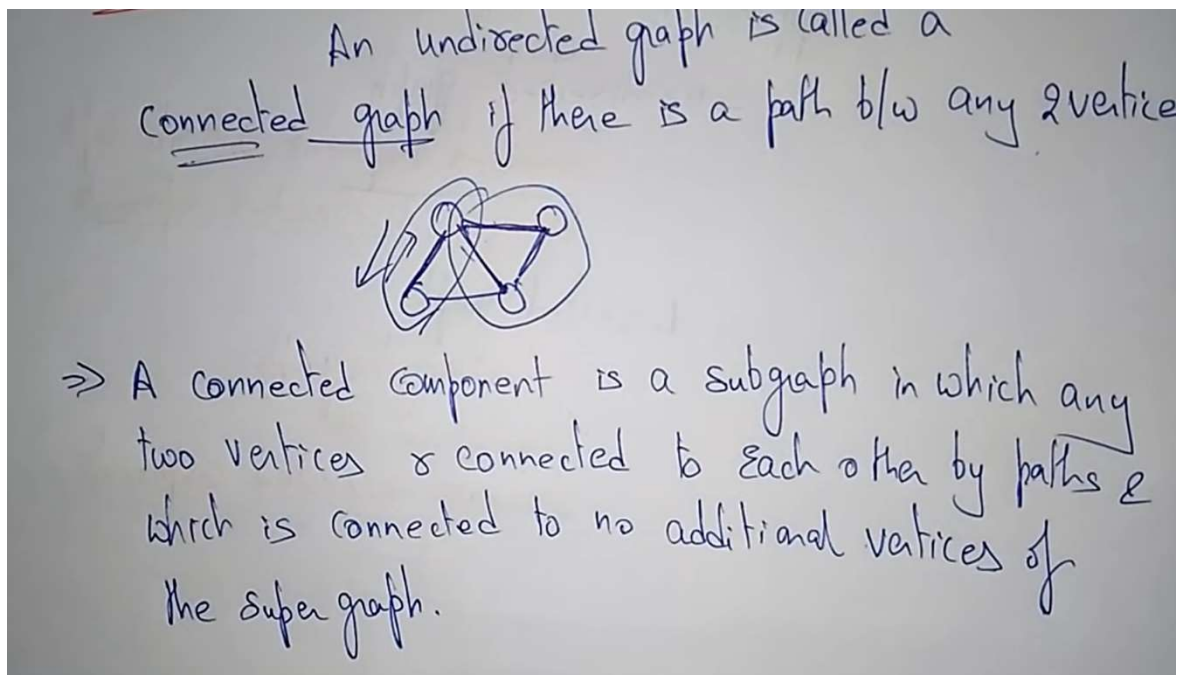 An undirected graph is called a
Connected graph if there is a path b/w any 2 vertice
=> A connected component is a subgraph in which any
two vertices r connected to each other by paths &
which is connected to no additional vertices of
the super graph.